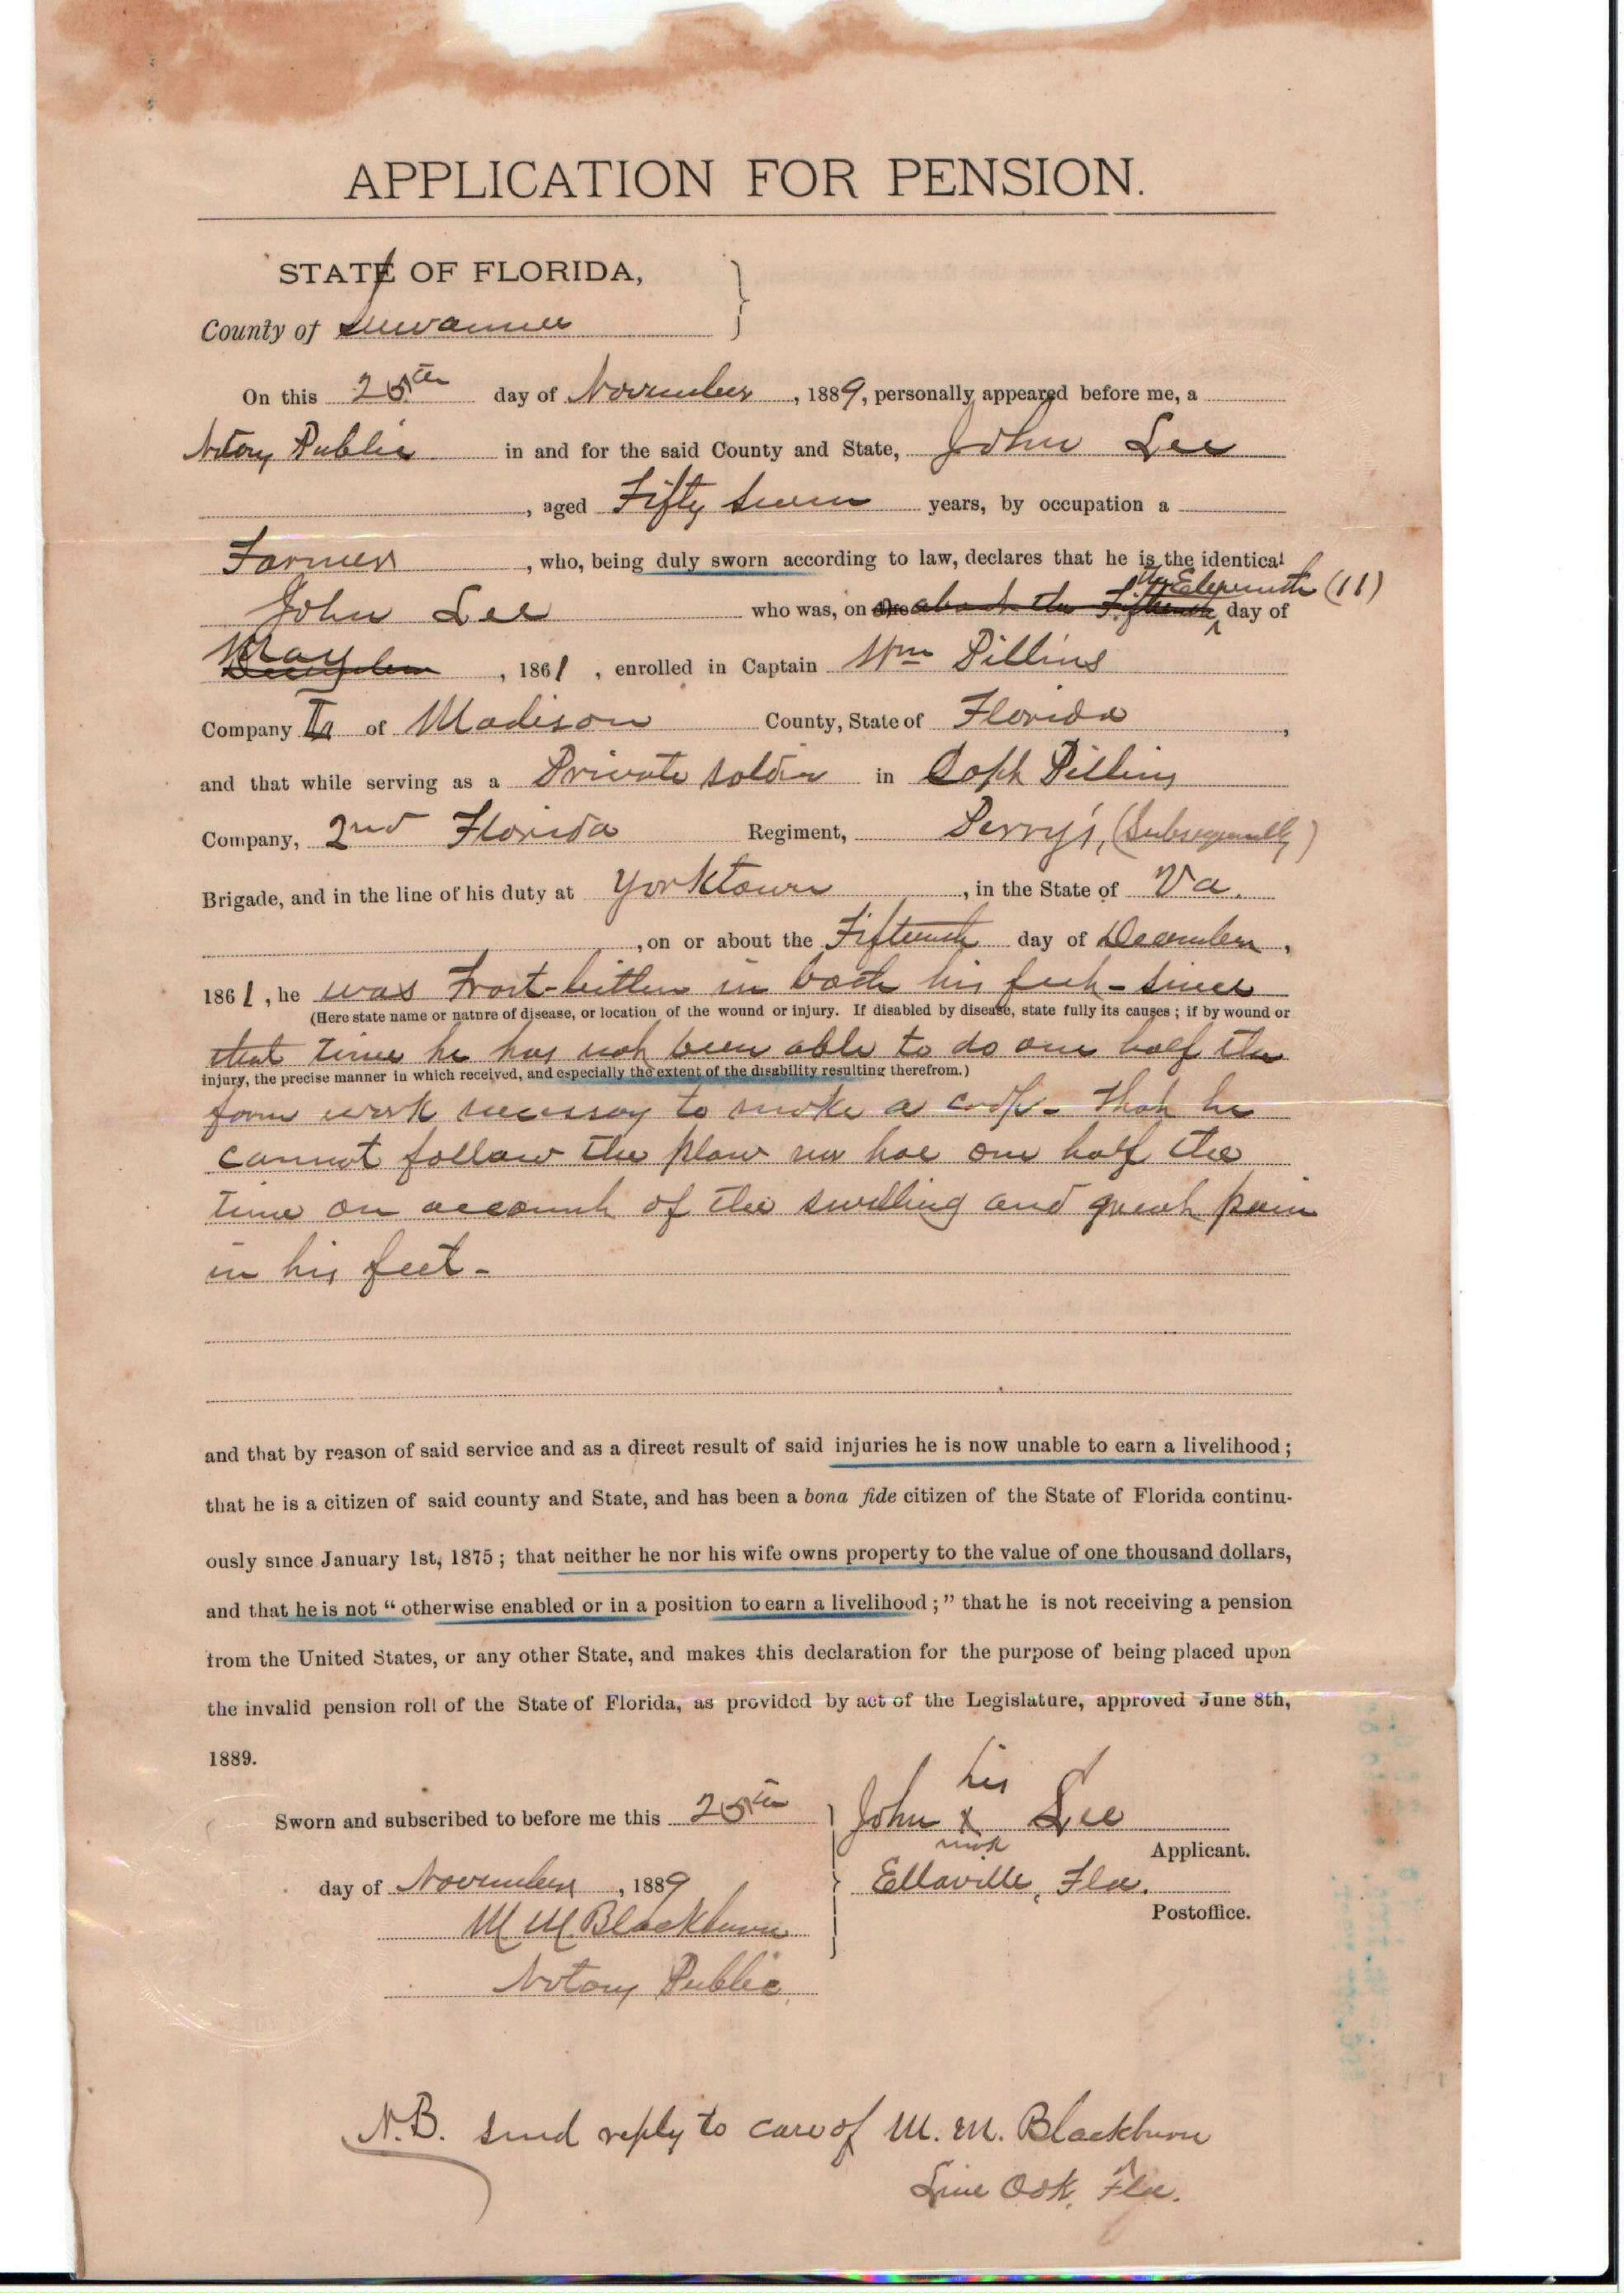 APPLICATION FOR PENSION.
STATE OF FLORIDA,
County of Suwannee
On this 25th day of November, 1889, personally appeared before me, a
Notary Public in and for the said County and State, John Lee
, aged Fifty Seven years, by occupation a
Farmer, who, being duly sworn according to law, declares that he is the identical
the Eleventh (11)
John Lee who was, on about the Fifteenth day of
May
December, 1861, enrolled in Captain Wm Pillins
Company of Madison County, State of Florida,
and that while serving as a Private soldier in Capt Pillins
Company, 2nd Florida Regiment, Perry's, (Subsequently)
Brigade, and in the line of his duty at Yorktown, in the State of Va.
, on or about the Fifteenth day of December,
1861, he was Frost-bitten in both his feet - since
(Here state name or nature of disease, or location of the wound or injury. If disabled by disease, state fully its causes; if by wound or
that time he has not been able to do one half the
injury, the precise manner in which received, and especially the extent of the disability resulting therefrom.)
farm work necessary to make a crop - that he
cannot follow the plow nor hoe one half the
time on account of the swelling and great pain
in his feet -
and that by reason of said service and as a direct result of said injuries he is now unable to earn a livelihood;
that he is a citizen of said county and State, and has been a bona fide citizen of the State of Florida continu-
ously since January 1st, 1875; that neither he nor his wife owns property to the value of one thousand dollars,
and that he is not "otherwise enabled or in a position to earn a livelihood;" that he is not receiving a pension
from the United States, or any other State, and makes this declaration for the purpose of being placed upon
the invalid pension roll of the State of Florida, as provided by act of the Legislature, approved June 8th,
1889.
his
Sworn and subscribed to before me this 25th John x Lee
mark
Applicant.
day of November, 1889 Ellaville, Fla.
Postoffice.
M M. Blackburn
Notary Public
N.B. Send reply to care of M. M. Blackburn
Live Oak, Fla.